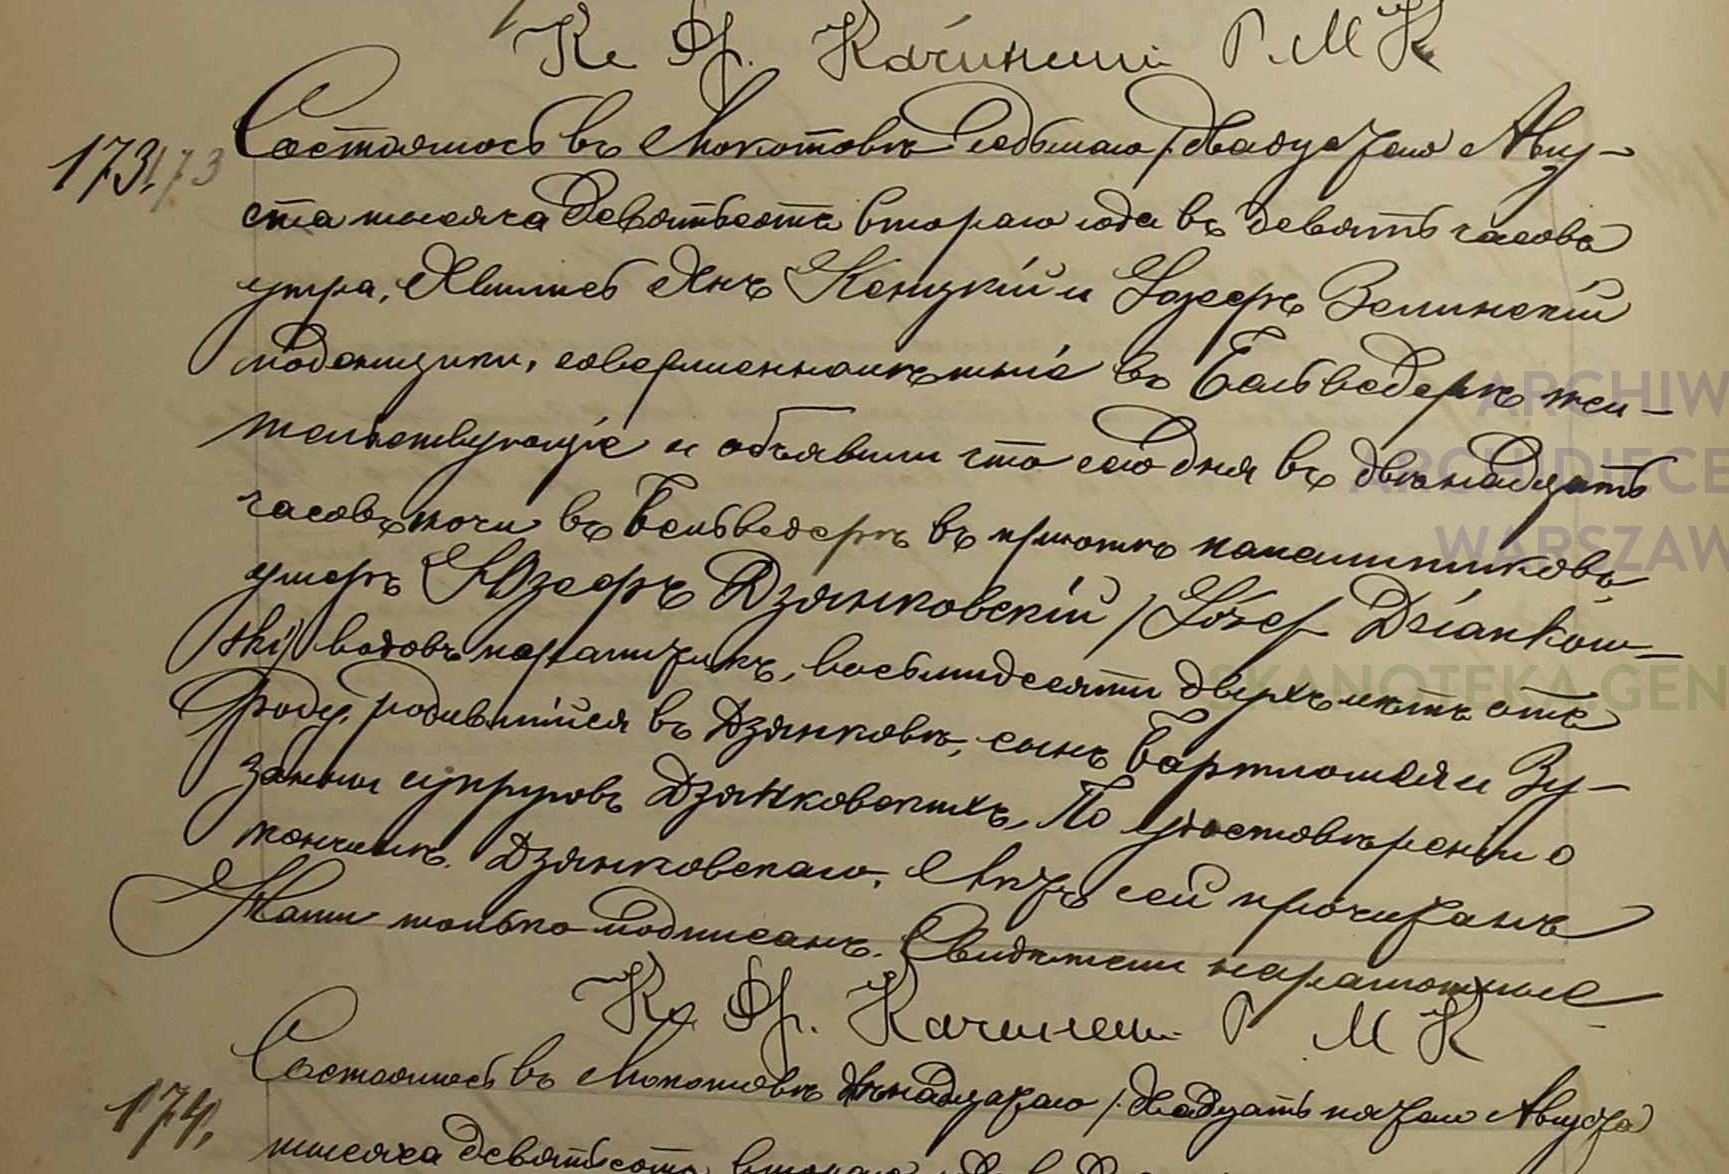 Кс Фр. Качински Р. М К
173. 173 Состоялось въ Мокотовѣ седьмаго /:двадцатаго Авгу-
ста тысяча девятьсотъ втораго года въ девять часовъ
утра. Явились Янъ Кенцкій и Юзефъ Зелинскій
поденщики, совершеннолѣтніе въ Бельведерѣ жи-
тельствующіе и объявили что сего дня въ двѣнадцать
часовъ ночи въ Бельведерѣ въ пріютѣ паралитиковъ
умеръ Юзефъ Дзянковскій /Józef Dziankow-
ski/ вдовъ паралитикъ, восьмидесяти двухъ лѣтъ отъ
роду, родившійся въ Дзянковѣ, сынъ Бартломея и Зу-
занны супруговъ Дзянковскихъ. По удостовѣреніи о
кончинѣ Дзянковскаго, Актъ сей прочитанъ
Нами только подписанъ. Свидѣтели неграмотные
Кс Фр. Качински Р М К
174. Состоялось въ Мокотовѣ двѣнадцатаго /:двадцать пятаго Августа
тысяча девятьсотъ втораго
ARCHIW
ARCHIDIECE
WARSZAW
SKANOTEKA.GEN